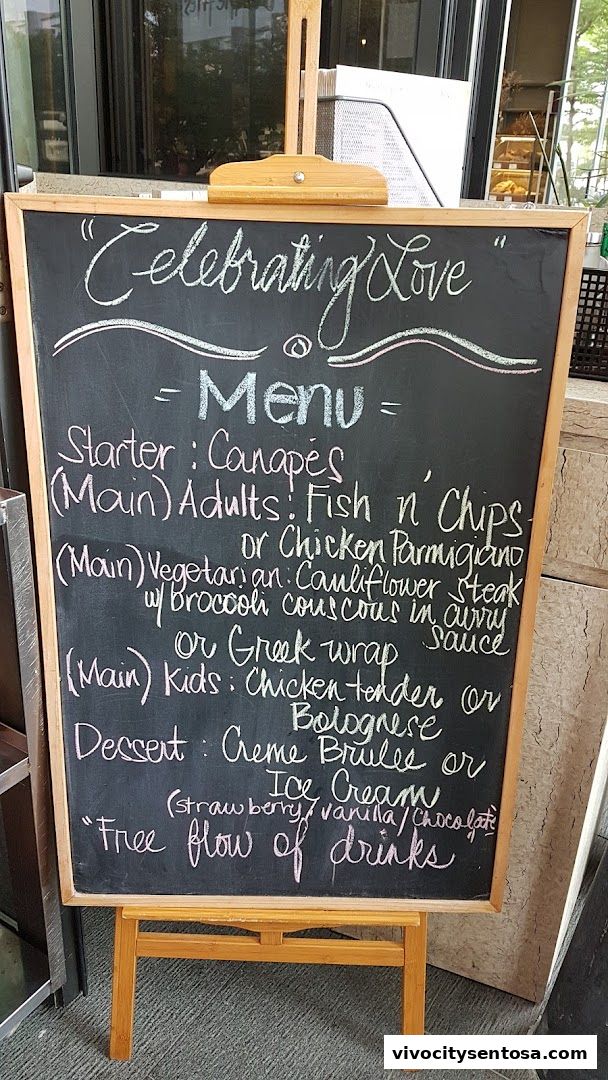 "Celebrating Love"
= Menu =
Starter : Canapés
(Main) Adults : Fish n' Chips
or Chicken Parmigiano
(Main) Vegetarian: Cauliflower steak
w/ brocooli couscous in curry
sauce
or Greek wrap
(Main) Kids : Chicken tender or
Bolognese
Dessert : Creme Brulee or
Ice Cream
(strawberry/vanilla/chocolate
"Free flow of drinks"
vivocitysentosa.com